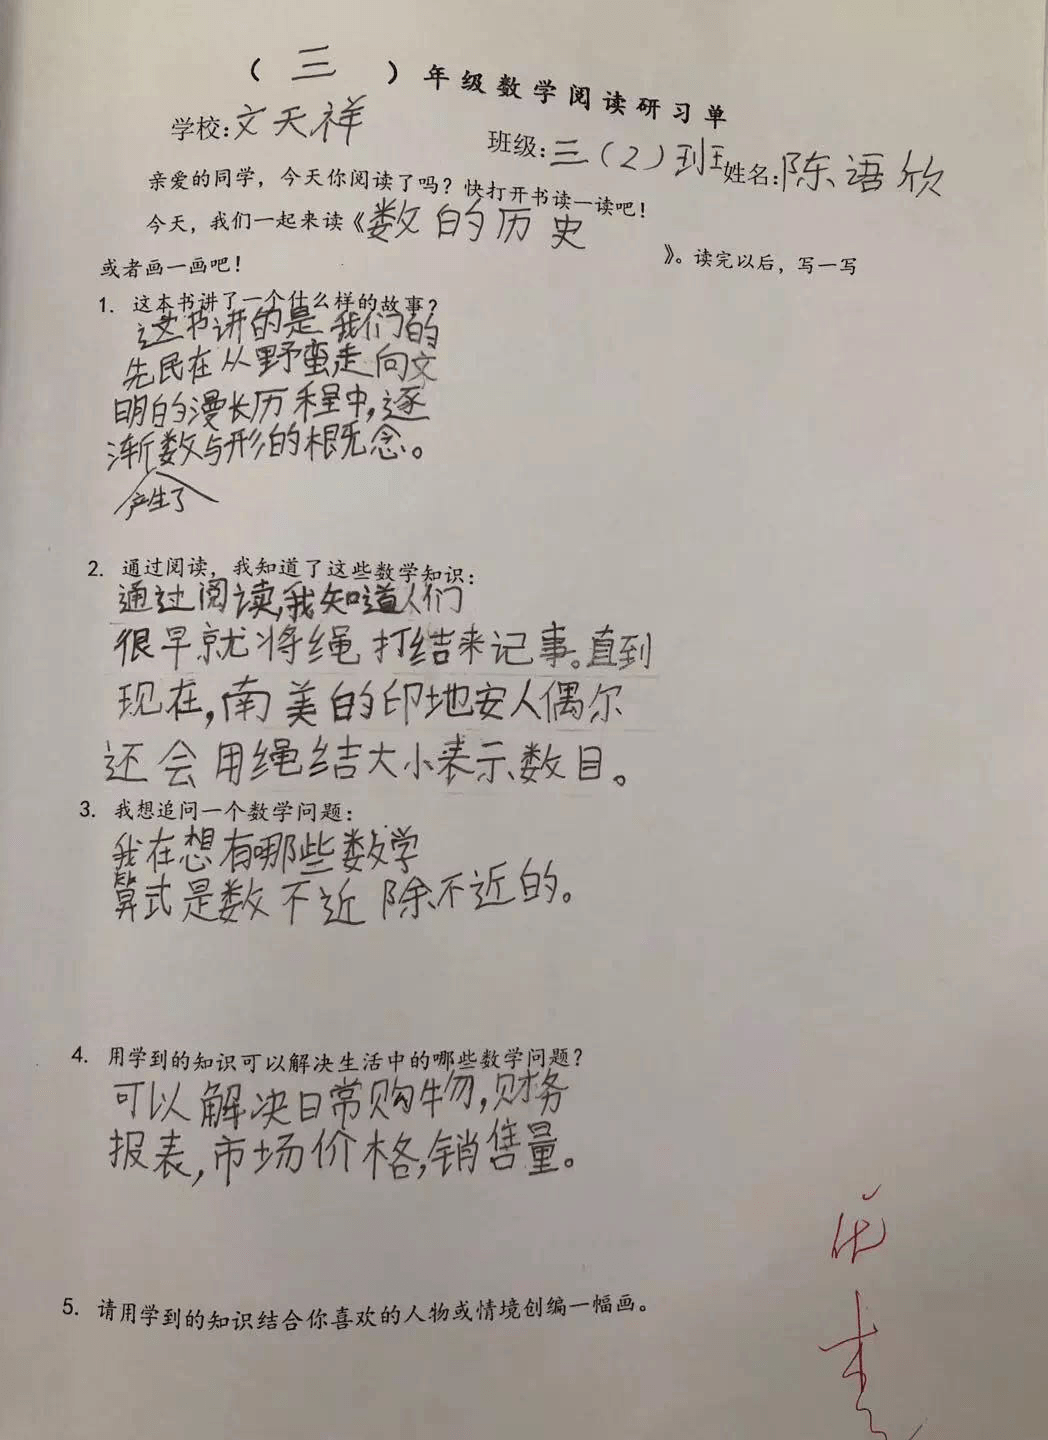 （ 三 ）年级数学阅读研习单
学校：文天祥 班级：三（2）班 姓名：陈语欣
亲爱的同学，今天你阅读了吗？快打开书读一读吧！
今天，我们一起来读《数的历史》。读完以后，写一写
或者画一画吧！
1. 这本书讲了一个什么样的故事？
这书讲的是我们的
先民在从野蛮走向文
明的漫长历程中，逐
渐数与形的概念。
产生了
2. 通过阅读，我知道了这些数学知识：
通过阅读，我知道人们
很早就将绳打结来记事。直到
现在，南美的印地安人偶尔
还会用绳结大小表示数目。
3. 我想追问一个数学问题：
我在想有哪些数学
算式是数不近除不近的。
4. 用学到的知识可以解决生活中的哪些数学问题？
可以解决日常购物，财务
报表，市场价格，销售量。
5. 请用学到的知识结合你喜欢的人物或情境创编一幅画。